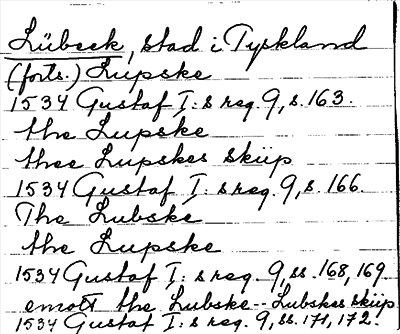 Lübeck, stad i Tyskland
(forts.) Lupske
1534 Gustaf I:s reg. 9, s. 163.
the Lupske
thee Lupskes skiip
1534 Gustaf I:s reg. 9, s. 166.
The Lubske
the Lupske
1534 Gustaf I:s reg. 9, ss. 168, 169
emott the Lubske -- Lubskes skiip
1534 Gustaf I:s reg. 9, ss. 171, 172.